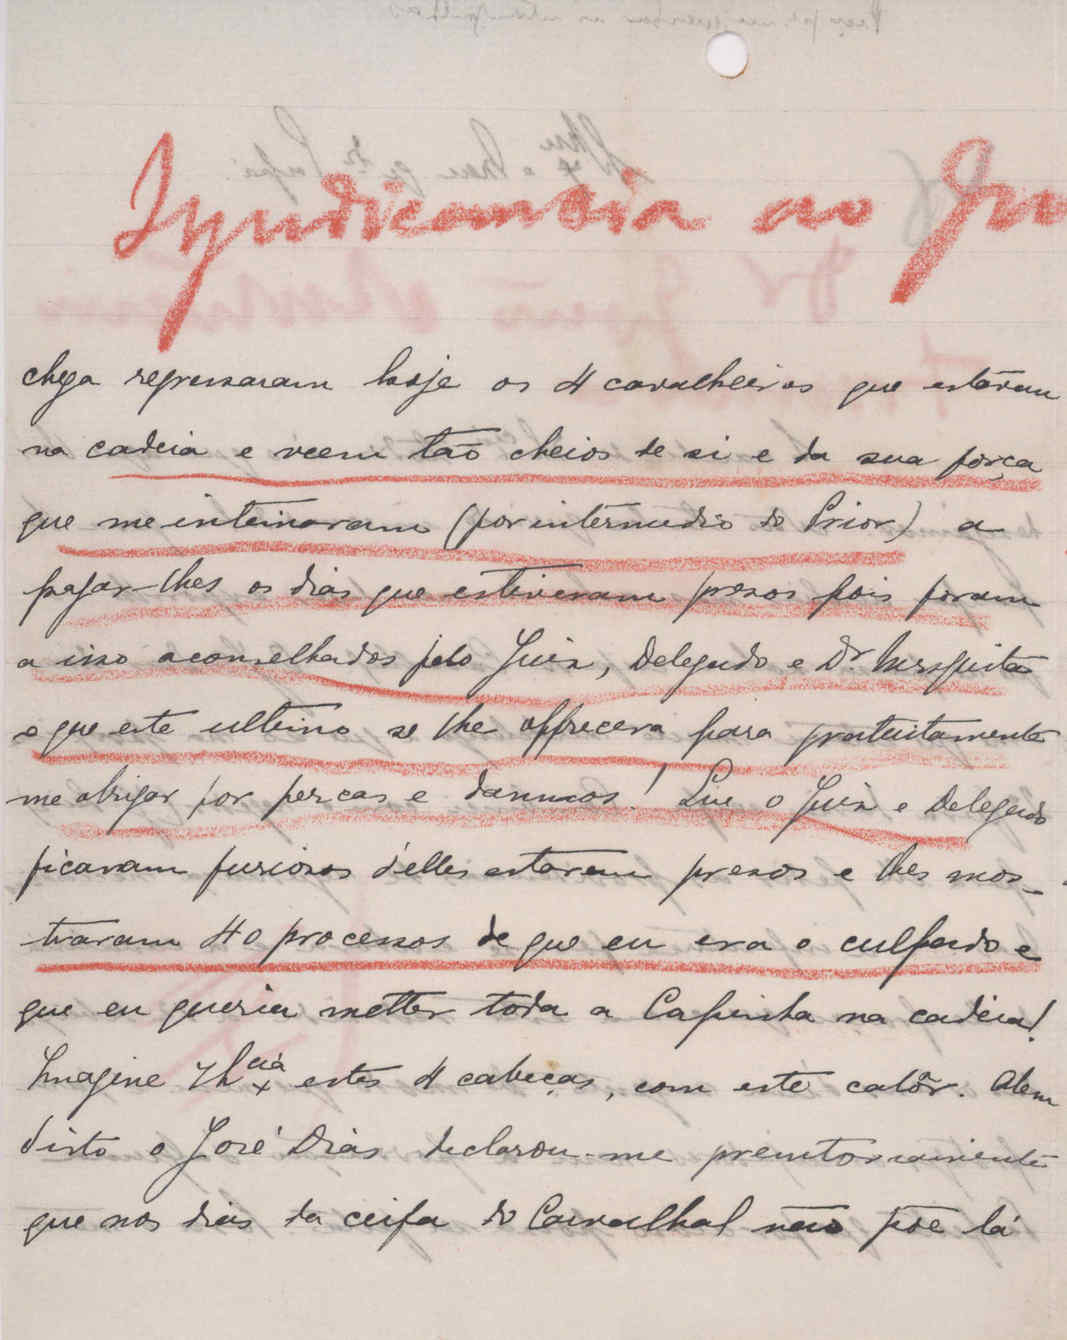 Syndicancia ao Juiz
chega regressaram hoje os 4 cavalheiros que estavam
na cadeia e veem tão cheios de si e da sua força
que me intimaram (por intermedio do Prior) a
pagar-lhes os dias que estiveram presos pois foram
a isso aconselhados pelo Juiz, Delegado e Dr. Mesquita
e que este ultimo se lhe offrecera para gratuitamente
me obrigar por percas e damnos! Que o Juiz e Delegado
ficaram furiosos d'elles estarem presos e lhes mos-
traram 40 processos de que eu era o culpado e
que eu queria metter toda a Capinha na cadeia!
Imagine estes 4 cabeças, com este calôr. Alem
disto o José Dias declarou-me premtoriamente
que nos dias da ceifa do Carvalhal não põe lá